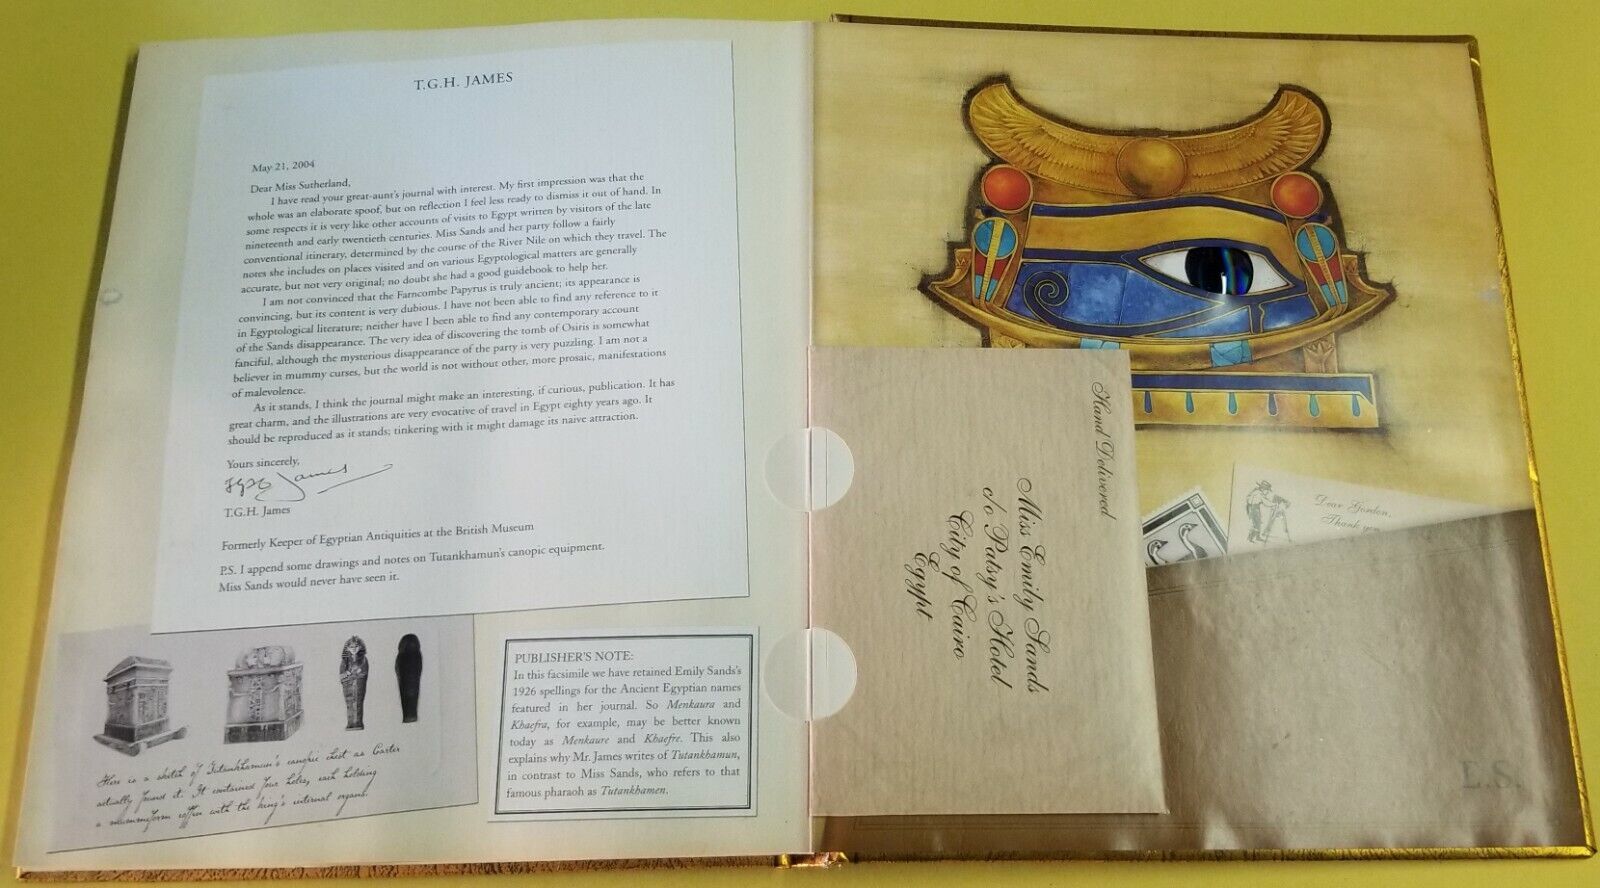 T.G.H. JAMES
May 21, 2004
Dear Miss Sutherland,
I have read your great-aunt's journal with interest. My first impression was that the
whole was an elaborate spoof, but on reflection I feel less ready to dismiss it out of hand. In
some respects it is very like other accounts of visits to Egypt written by visitors of the late
nineteenth and early twentieth centuries. Miss Sands and her party follow a fairly
conventional itinerary, determined by the course of the River Nile on which they travel. The
notes she includes on places visited and on various Egyptological matters are generally
accurate, but not very original; no doubt she had a good guidebook to help her.
I am not convinced that the Farncombe Papyrus is truly ancient; its appearance is
convincing, but its content is very dubious. I have not been able to find any reference to it
in Egyptological literature; neither have I been able to find any contemporary account
of the Sands disappearance. The very idea of discovering the tomb of Osiris is somewhat
fanciful, although the mysterious disappearance of the party is very puzzling. I am not a
believer in mummy curses, but the world is not without other, more prosaic, manifestations
of malevolence.
As it stands, I think the journal might make an interesting, if curious, publication. It has
great charm, and the illustrations are very evocative of travel in Egypt eighty years ago. It
should be reproduced as it stands; tinkering with it might damage its naive attraction.
Yours sincerely,
James
T.G.H. James
Formerly Keeper of Egyptian Antiquities at the British Museum
P.S. I append some drawings and notes on Tutankhamun's canopic equipment.
Miss Sands would never have seen it.
Here is a sketch of Tutankhamun's canopic chest as Carter
actually found it. It contained four holes, each holding
a mummiform coffin with the king's internal organs.
PUBLISHER'S NOTE:
In this facsimile we have retained Emily Sands's
1926 spellings for the Ancient Egyptian names
featured in her journal. So Menkaura and
Khaefra, for example, may be better known
today as Menkaure and Khaefre. This also
explains why Mr. James writes of Tutankhamun,
in contrast to Miss Sands, who refers to that
famous pharaoh as Tutankhamen.
Hand Delivered
Miss Emily Sands
c/o Patsy's Hotel
City of Cairo
Egypt
Dear Gordon,
Thank you
E.S.